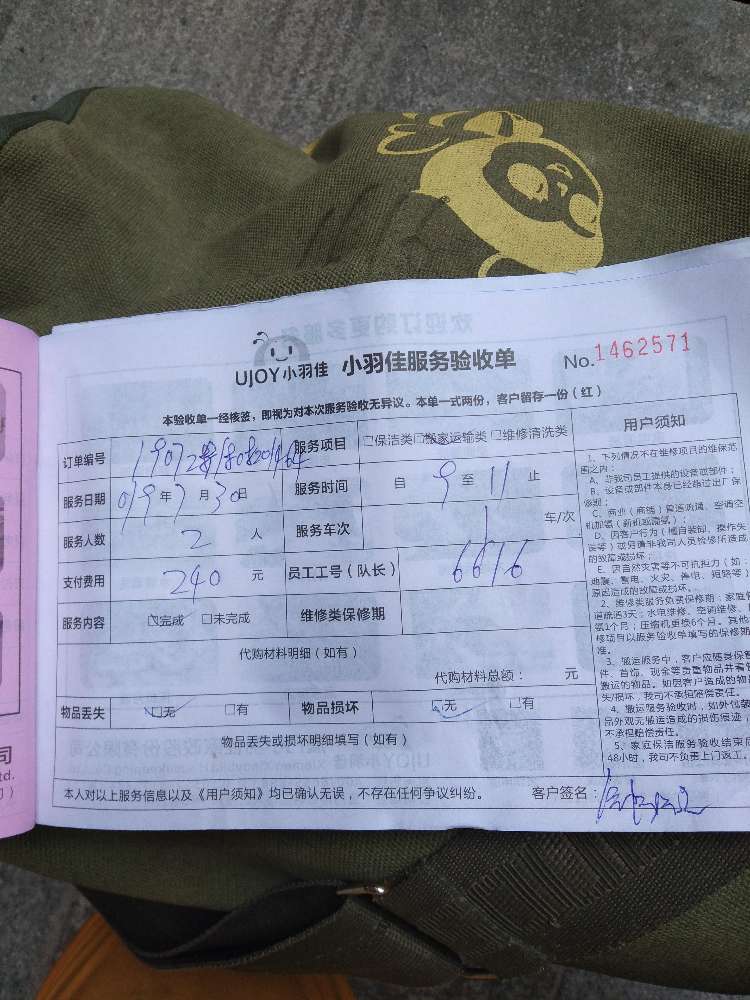 欢迎订购更多服务
UJOY小羽佳 小羽佳服务验收单 No.1462571
本验收单一经核签，即视为对本次服务验收无异议。本单一式两份，客户留存一份（红）
订单编号
服务项目 □保洁类□搬家运输类□维修清洗类
服务日期 019年7月30日
服务时间 自9至11止
服务人数 2人
服务车次 1车/次
支付费用 240元
员工工号（队长） 6616
服务内容 □完成 □未完成
维修类保修期
代购材料明细（如有）
代购材料总额： 元
物品丢失 □无 □有
物品损坏 □无 □有
物品丢失或损坏明细填写（如有）
本人对以上服务信息以及《用户须知》均已确认无误，不存在任何争议纠纷。 客户签名：
用户须知
1、下列情况不在维修项目的维保范
围之内：
A、非我司员工提供的设备或部件；
B、设备或部件本身已经超过出厂保
修期；
C、商业（商铺）管道疏通、空调空
D、因客户行为（擅自装卸、操作失
误等）或另请非我司人员检修所造成
的故障或损坏；
E、因自然灾害等不可抗拒力（如：
地震、雷电、火灾、停电、短路等）
原因造成的故障或损坏。
2、维修类服务免费保修期：家庭管
道疏通3天；水电维修、空调维修、
氨1个月；压缩机更换6个月。其他
修项目以服务验收单填写的保修期
准。
3、搬运服务中，客户应随身保管
件、首饰、现金等贵重物品并看管
搬运的物品。如因客户造成的物品
失/损坏，我司不承担赔偿责任。
4、搬运服务验收时，如外包装
品外观无搬运造成的损伤痕迹，
不承担赔偿责任。
5、家庭保洁服务验收结束后
48小时，我司不负责上门返工。
司
td.